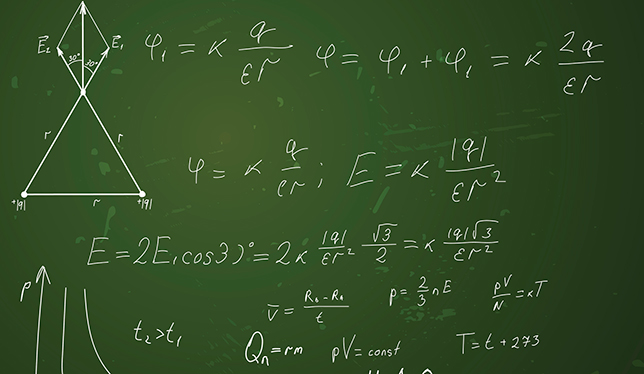 E₂ 30° 30° E₁
φ₁ = κ q/εr φ = φ₁ + φ₁ = κ 2q/εr
r r
φ = κ q/εr; E = κ |q|/εr²
+|q| r +|q|
E = 2E₁cos30° = 2κ |q|/εr² √3/2 = κ |q|√3/εr²
p
p = 2/3 nE pV/N = κT
t₂>t₁
Qₙ = rm pV = const T = t + 273